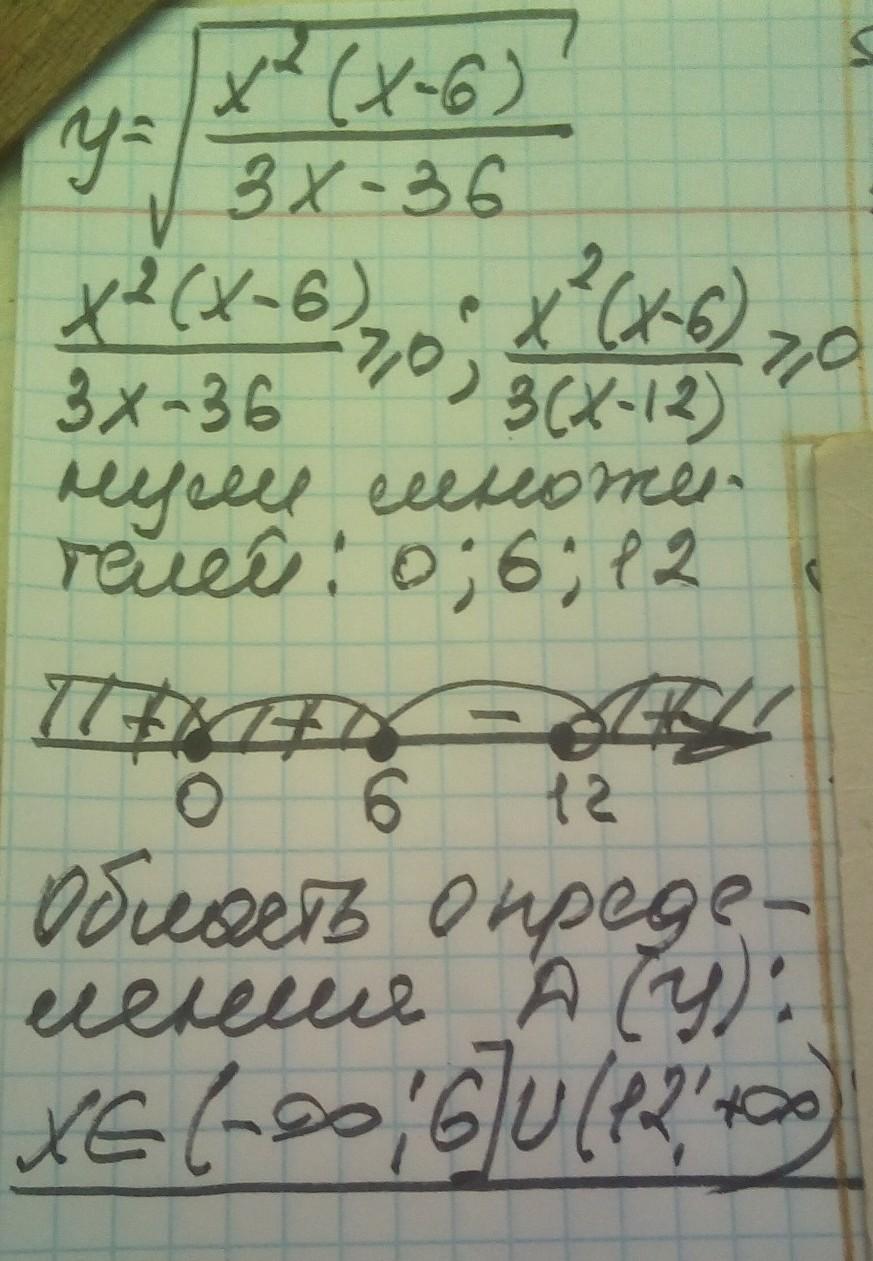 y = √(x²(x-6) / (3x-36))
x²(x-6) / (3x-36) ⩾ 0; x²(x-6) / (3(x-12)) ⩾ 0
нули множи-
телей: 0; 6; 12
+ + − +
0 6 12
Область опреде-
ления Д(y):
x∈(-∞; 6]∪(12; +∞)